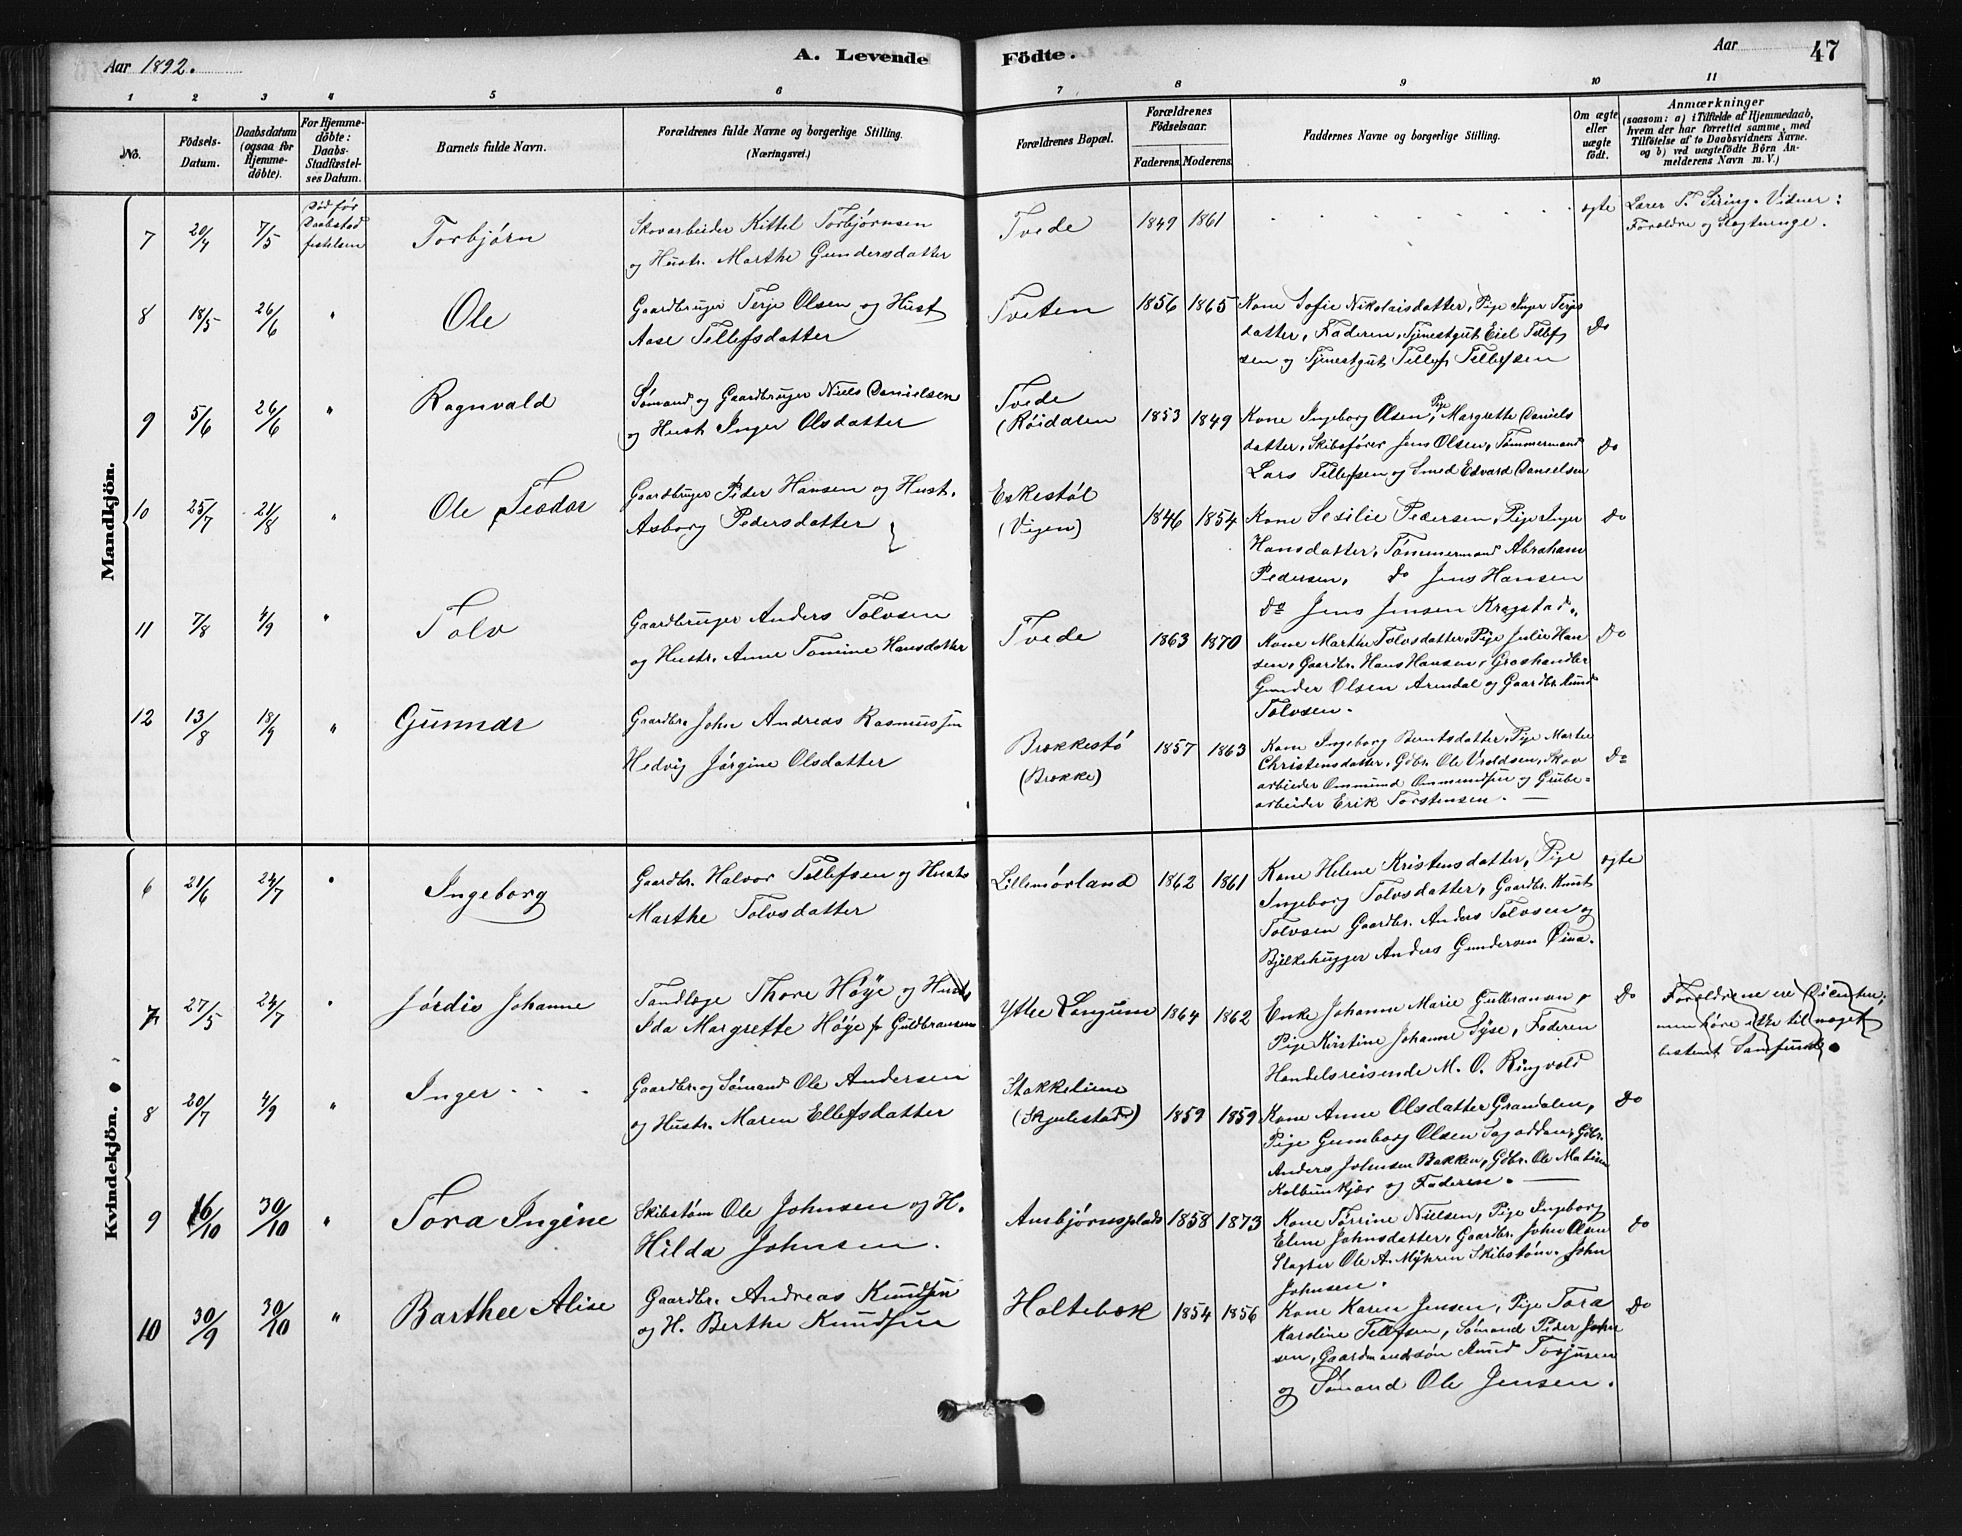 Aar 1892.
A. Levende Födte.
Aar 47
1 2 3 4 5 6 7 8 9 10 11
No.
Födsels-Datum.
Daabsdatum (ogsaa for Hjemme-döbte).
For Hjemme-döbte: Daabs-Stadfæstel-ses Datum.
Barnets fulde Navn.
Forældrenes fulde Navne og borgerlige Stilling. (Næringsvei.)
Forældrenes Bopæl.
Forældrenes Födselsaar.
Faderens. Moderens.
Faddernes Navne og borgerlige Stilling.
Om ægte eller uægte födt.
Anmærkninger
(saasom: a) i Tilfælde af Hjemmedaab,
hvem der har forrettet samme, med
Tilföielse af to Daabsvidners Navne.
og b) ved uægtefödte Börn An-
melderens Navn m. V.)
Mandkjön.
7 20/4 7/5 Død før Daabstad festelsen Torbjørn
Skovarbeider Kittel Torbjørnsen
og Hustr. Marthe Gundersdatter
Tvede 1849 1861 ægte
Lærer T. Sering. Vidner:
Forældre og Slægtninge.
8 18/5 26/6 " Ole
Gaardbruger Terje Olsen og Hust
Aase Tellefsdatter
Tveten 1856 1865
Kone Sofie Nikolaisdatter, Pige Inger Terjes
datter, Faderen, Tjenestgut Eiel Tellef
sen og Tjenestgut Tellef Tellefsen
Do
9 5/6 26/6 " Ragnvald
Sømand og Gaardbruger Niels Danielsen
og Hust. Inger Olsdatter
Tvede (Røidalen 1853 1849
Kone Ingeborg Olsen, Pige Margrethe Daniels
datter, Skibsfører Jens Olsen, Tømmermand
Lars Tellefsen og Smed Edvard Danielsen
Do
10 25/7 21/8 " Ole Teodor
Gaardbruger Peder Hansen og Hust.
Asborg Pedersdatter
Eskestøl (Vigen) 1846 1854
Kone Sesilie Pedersen, Pige Inger
Hansdatter, Tømmermand Abraham
Pedersen, do Jens Hansen
do Jens Jensen Kragstad.
Do
11 7/8 4/9 " Tolv
Gaardbruger Anders Tolvsen
og Hustr. Anne Tomine Hansdatter
Tvede 1863 1870
Kone Marthe Tolvsdatter, Pige Julie Han
sen, Gaardbr. Hans Hansen, Groshandler
Gunder Olsen Arendal og Gaardbr. Knud
Tolvsen.
Do
12 13/8 18/9 " Gunnar
Gaardbr. John Andreas Rasmussen
Hedvig Jørgine Olsdatter
Brækkestø (Brække) 1857 1863
Kone Ingeborg Berntsdatter, Pige Marte
Christensdatter, Gdbr. Ole Vroldsen, Skov
arbeider Ommund Ommundsen og Grube-
arbeider Erik Torstensen.
Do
Kvindekjön.
6 21/6 24/7 " Ingeborg
Gaardbr. Halvor Tellefsen og Hustr
Marthe Tolvsdatter
Lillemørland 1862 1861
Kone Helene Kristensdatter, Pige
Ingeborg Tolvsdatter, Gaardbr. Knut
Tolvsen Gaardbr. Anders Tolvsen og
Bjelkehugger Anders Gundersen
ægte
7 27/5 24/7 " Jørdis Johanne
Tandlæge Thore Høÿe og Hust
Ida Margrette Høÿe f. Guldbransen
Yttre Langum 1864 1862
Enke Johanne Marie Gulbransen,
Pige Kristine Johanne Syse, Faderen
Handelsreisende M. O. Ringvold
Do
Forældrene ere
men høre ikke til noget
bestemt Samfund.
8 20/7 4/9 " Inger
Gaardbr. og Sømand Ole Andersen
og Hustr. Maren Ellefsdatter
Stokkeliene (Skjulestad) 1859 1859
Kone Anne Olsdatter Grandalen,
Pige Gunborg Olsen Sagodden, Gdbr.
Anders Johnsen Bakken, Gdbr. Ole
Kolbunkjær og Faderen.
Do
9 16/10 30/10 " Tora Ingine
Skibstøm Ole Johnsen og H.
Hilda Johnsen.
Ambjørnsplads 1858 1873
Kone Torrine Nielsen, Pige Ingeborg
Eline Johnsdatter, Gaardbr. John Olsen
Slagter Ole A. Myhren Skibstøm. John
Johnsen.
Do
10 30/9 30/10 " Barthee Alise
Gaardbr. Andreas Knudsen
og H. Berthe Knudsen
Holtebæk 1854 1856
Kone Karen Jensen, Pige Tora
Karoline Tellefsen, Sømand Peder John
sen, Gaardmandssøn Knud Torjusen
og Sømand Ole Jensen.
Do